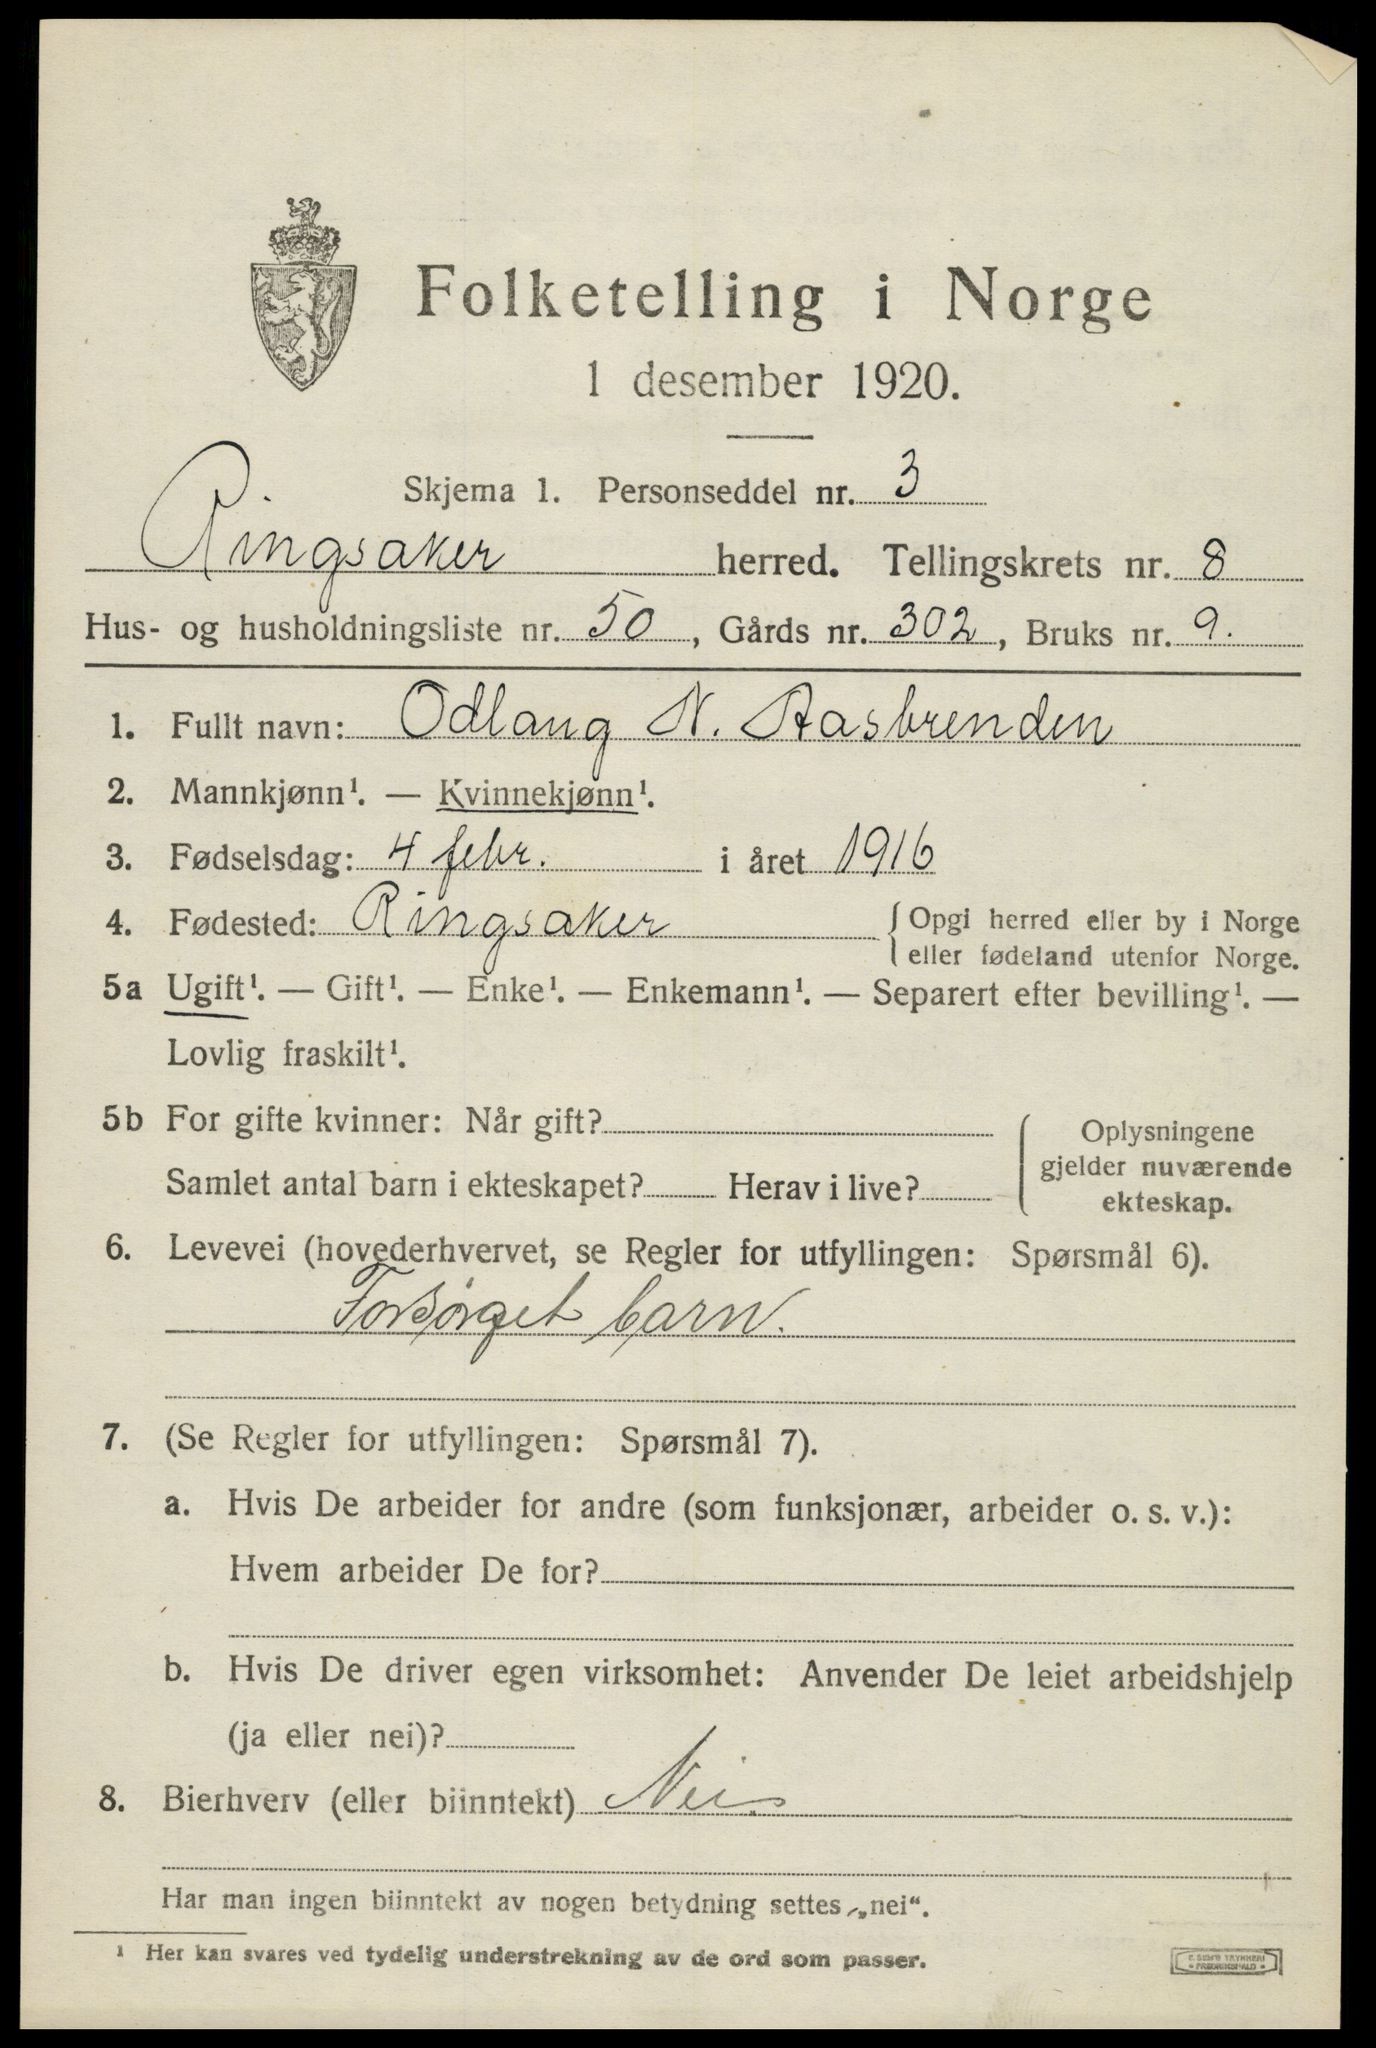 Folketelling i Norge
1 desember 1920.
Skjema 1. Personseddel nr. 3
Ringsaker herred. Tellingskrets nr. 8
Hus- og husholdningsliste nr. 50, Gårds nr. 302, Bruks nr. 9.
1. Fullt navn: Odlaug N. Aasbrenden
2. Mannkjønn¹. — Kvinnekjønn¹.
3. Fødselsdag: 4 febr. i året 1916
4. Fødested: Ringsaker { Opgi herred eller by i Norge
eller fødeland utenfor Norge.
5a Ugift¹. — Gift¹. — Enke¹. — Enkemann¹. — Separert efter bevilling¹. —
Lovlig fraskilt¹.
5b For gifte kvinner: Når gift?
Samlet antal barn i ekteskapet? Herav i live?
Oplysningene
gjelder nuværende
ekteskap.
6. Levevei (hovederhvervet, se Regler for utfyllingen: Spørsmål 6).
Forsørget barn.
7. (Se Regler for utfyllingen: Spørsmål 7).
a. Hvis De arbeider for andre (som funksjonær, arbeider o. s. v.):
Hvem arbeider De for?
b. Hvis De driver egen virksomhet: Anvender De leiet arbeidshjelp
(ja eller nei)?
8. Bierhverv (eller biinntekt) Nei
Har man ingen biinntekt av nogen betydning settes „nei“.
¹ Her kan svares ved tydelig understrekning av de ord som passer.